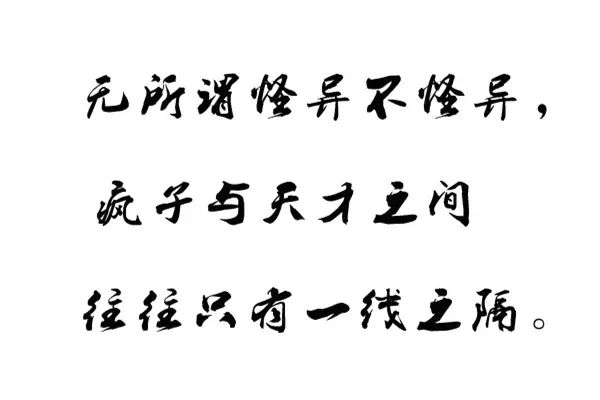 无所谓怪异不怪异，
疯子与天才之间
往往只有一线之隔。